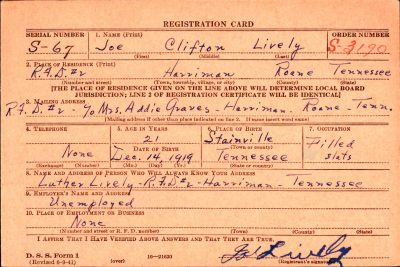 REGISTRATION CARD
SERIAL NUMBER 1. NAME (Print) ORDER NUMBER
S-67 Joe Clifton Lively S-3190
(First) (Middle) (Last)
2. PLACE OF RESIDENCE (Print)
R.F.D.#2 Harriman Roane Tennessee
(Number and street) (Town, township, village, or city) (County) (State)
[THE PLACE OF RESIDENCE GIVEN ON THE LINE ABOVE WILL DETERMINE LOCAL BOARD
JURISDICTION; LINE 2 OF REGISTRATION CERTIFICATE WILL BE IDENTICAL]
3. MAILING ADDRESS
R.F.D.#2 - % Mrs. Addie Graves - Harriman. Roane - Tenn.
[Mailing address if other than place indicated on line 2. If same insert word same]
4. TELEPHONE 5. AGE IN YEARS 6. PLACE OF BIRTH 7. OCCUPATION
21 Stainville
DATE OF BIRTH (Town or county) Filled
None Dec. 14, 1919 Tennessee slats
(Exchange) (Number) (Mo.) (Day) (Yr.) (State or country)
8. NAME AND ADDRESS OF PERSON WHO WILL ALWAYS KNOW YOUR ADDRESS
Luther Lively - R.F.D#2 - Harriman - Tennessee
9. EMPLOYER'S NAME AND ADDRESS
Unemployed
10. PLACE OF EMPLOYMENT OR BUSINESS
None
(Number and street or R. F. D. number) (Town) (County) (State)
I AFFIRM THAT I HAVE VERIFIED ABOVE ANSWERS AND THAT THEY ARE TRUE.
D. S. S. Form 1 Lively
(Revised 6-9-41) (over) 16—21630 (Registrant's signature)